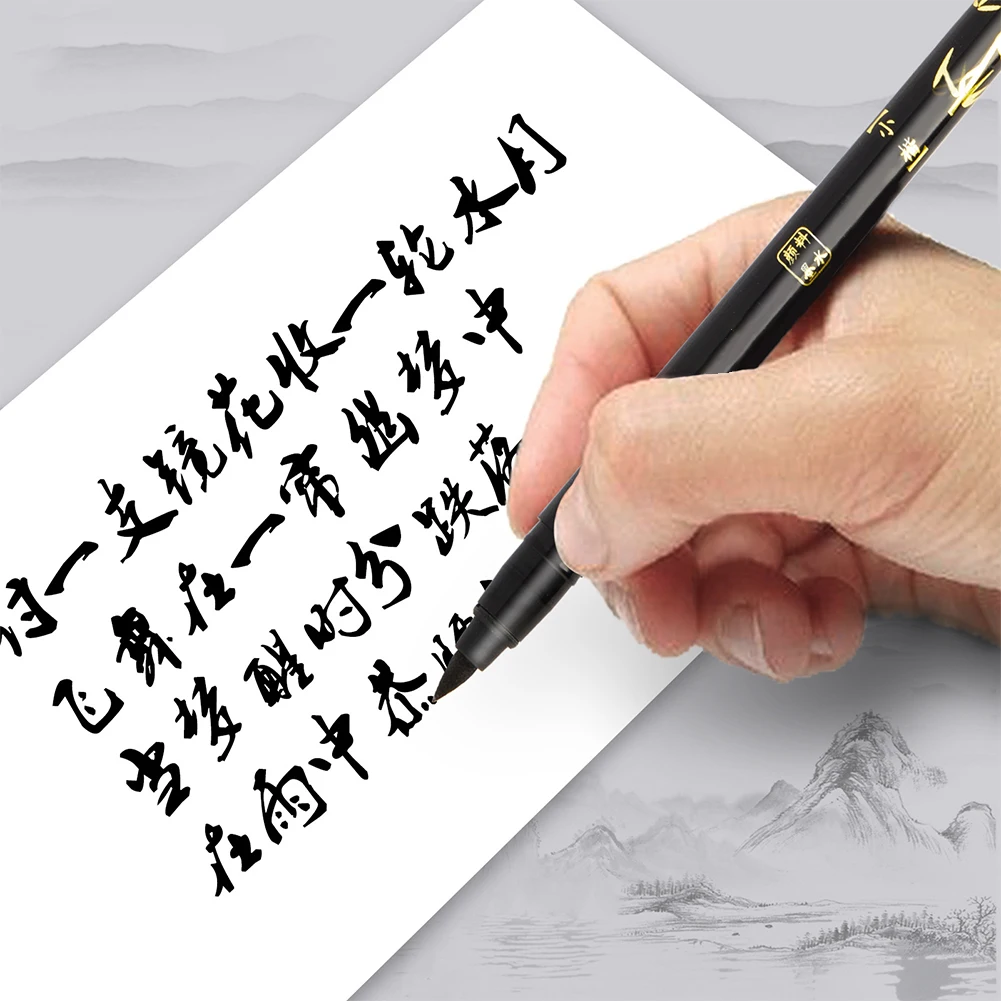 一支镜花收一轮水月
飞舞在一帘幽梦中
当梦醒时分跌落
在雨中恭
[小楷]
颜料
墨水